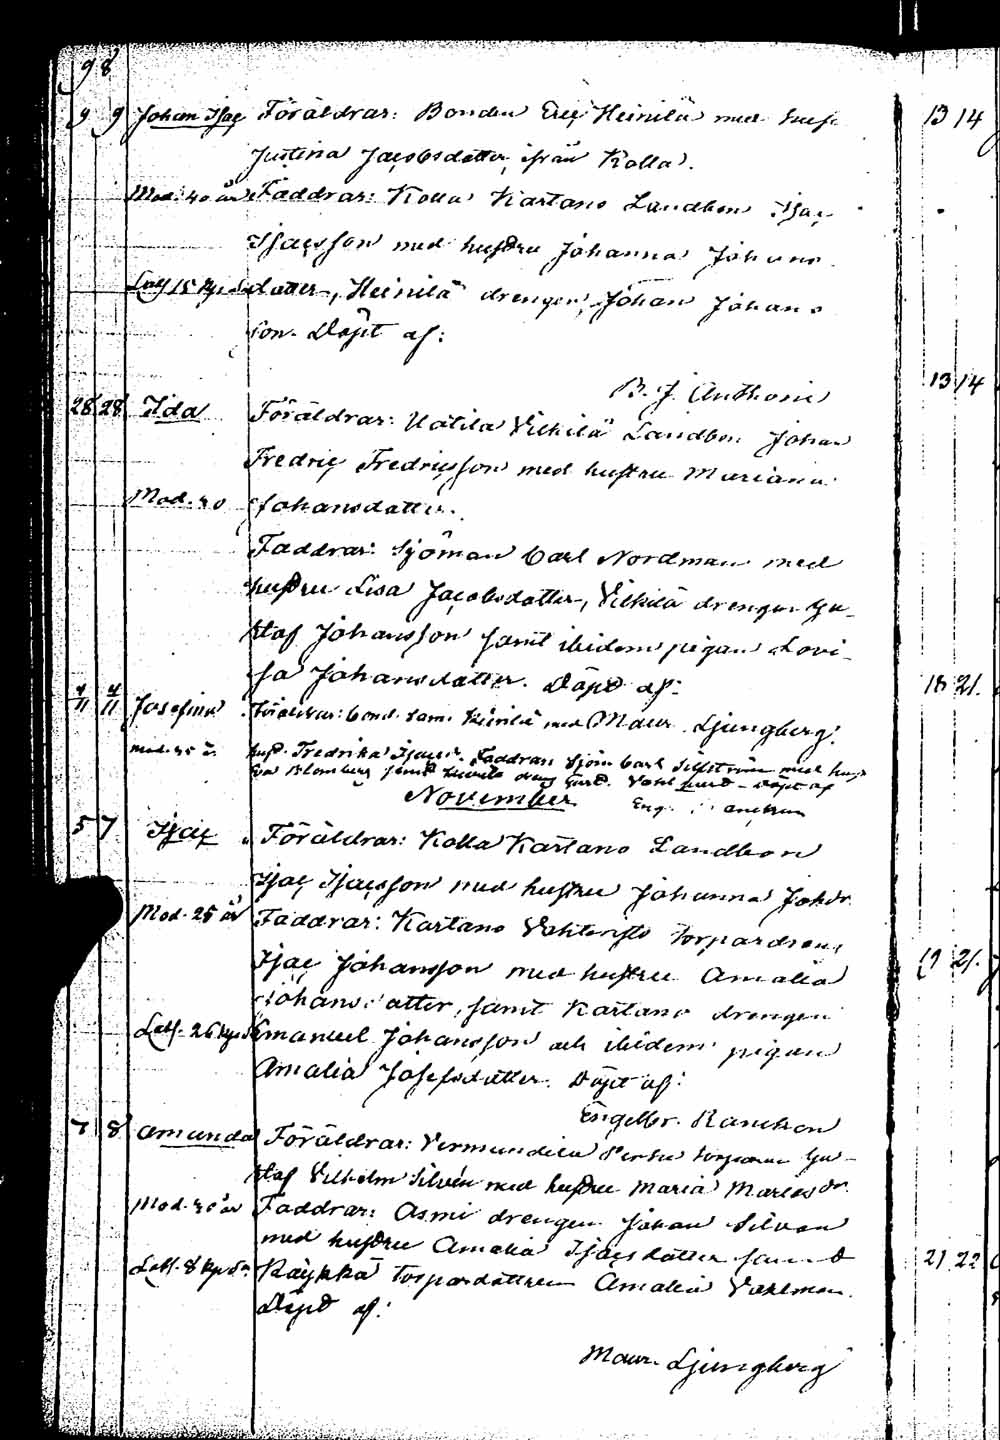 98
9 9 Johan Isac Föräldrar: Bonden Eric Heinilä med hust
Justina Jacobsdotter ifrån Kolla.
Mod. 40 år Faddrar: Kolla Kartano Landbon Isac
Isacsson med hustru Johanna Johans
dotter, Heinilä drengen Johan Johans
son. Döpt af:
B. J. Anthoni
28 28 Ida Föräldrar: Uotila Vilkilä Landbon Johan
Fredric Fredricsson med hustru Mariana
Mod. 40 Johansdotter.
Faddrar: Sjöman Carl Nordman med
hustru Lisa Jacobsdotter, Vilkilä drengen Gu-
staf Johansson samt ibidem pigan Lovi-
sa Johansdotter. Döpt af:
4/11 4/11 Josefina Föräldrar: Bond. Heinilä med Maur. Ljungberg.
hust. Fredrika Faddrar: Sjöm. Carl med hust
Eva Blomberg samt dreng Döpt af
November
5 7 Isac Föräldrar: Kolla Kartano Landbon
Isac Isacsson med hustru Johanna Johdr.
Mod. 25 år Faddrar: Kartano torpardren
Isac Johansson med hustru Amalia
Johansdotter, samt Kartano drengen
Emanuel Johansson och ibidem pigan
Amalia Josefsdotter. Döpt af:
Engelbr. Rancken
7 8 Amanda Föräldrar: Vermundila torparen Gu-
staf Vilhelm Silvén med hustru Maria Mariasdr.
Mod. 40 år Faddrar: Asmi drengen Johan Silvan
med hustru Amalia Isacsdotter samt
Käykkä torpardottren Amalia Vahlman.
Döpt af:
Maur. Ljungberg
13 14
13 14
18 21.
19 21.
21 22